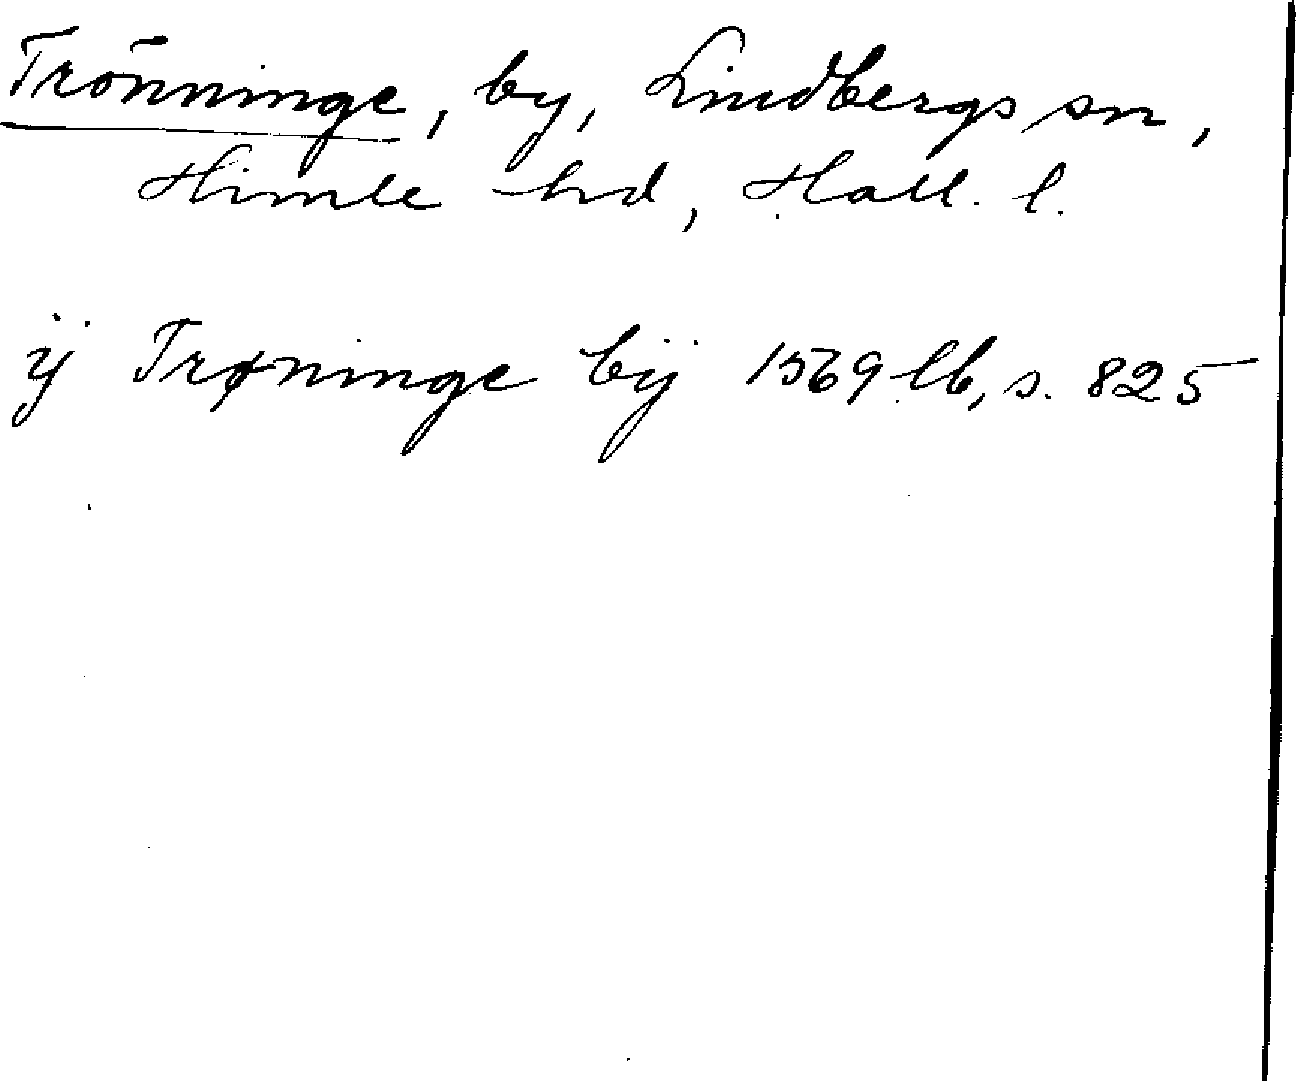 Trönninge, by, Lindbergs sn,
Himle hd, Hall. l.
ÿ Trøninge bÿ 1569 lb, s. 825